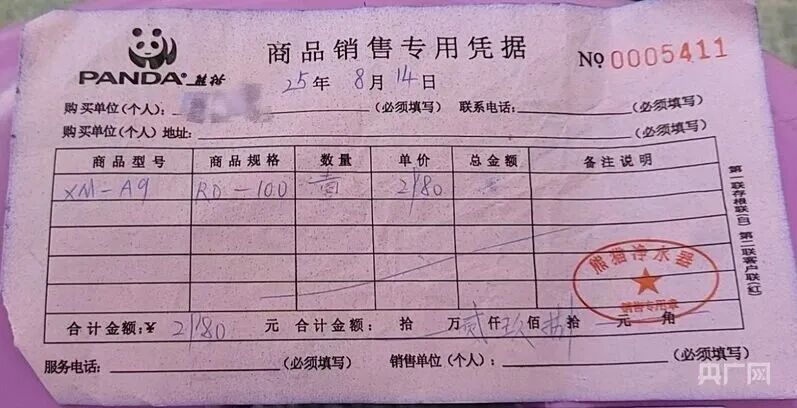 PANDA® 熊猫
商品销售专用凭据
No 0005411
25年 8月 14日
购买单位(个人): (必须填写) 联系电话: (必须填写)
购买单位(个人)地址: (必须填写)
商品型号 商品规格 数量 单价 总金额 备注说明
XM-A9 RO-100 壹 2180
合计金额:¥ 2180 元 合计金额: 拾 万 贰 仟 佰 拾 元 角
服务电话: (必须填写) 销售单位(个人): (必须填写)
第一联存根联(白) 第二联客户联(红)
熊猫净水器
销售专用章
央广网